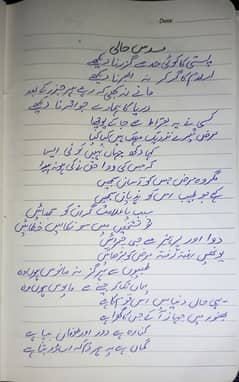 Date:
مسدس حالی
پستی کا کوئی حد سے گزرنا دیکھے
اسلام کا گر کر نہ ابھرنا دیکھے
مانے نہ کبھی کہ مد ہے ہر جزر کے بعد
دریا کا ہمارے جو اترنا دیکھے
کسی نے یہ بقراط سے جا کے پوچھا
مرض تیرے نزدیک مہلک ہیں کیا کیا
کہا دکھ جہاں میں نہیں کوئی ایسا
کہ جس کی دوا حق نے کی ہو نہ پیدا
مگر وہ مرض جس کو آسان سمجھیں
کہے جو طبیب اس کو ہذیان سمجھیں
سبب یا علامت گر ان کو سجھائیں
تو تشخیص میں سو نکالیں خطائیں
دوا اور پرہیز سے جی چرائیں
یونہی رفتہ رفتہ مرض کو بڑھائیں
طبیبوں سے ہرگز نہ مانوس ہوں وہ
یہاں تک کہ جینے سے مایوس ہوں وہ
یہی حال دنیا میں اس قوم کا ہے
بھنور میں جہاز آ کے جس کا گھرا ہے
کنارہ ہے دور اور طوفان بپا ہے
گماں ہے یہ ہر دم کہ اب ڈوبتا ہے